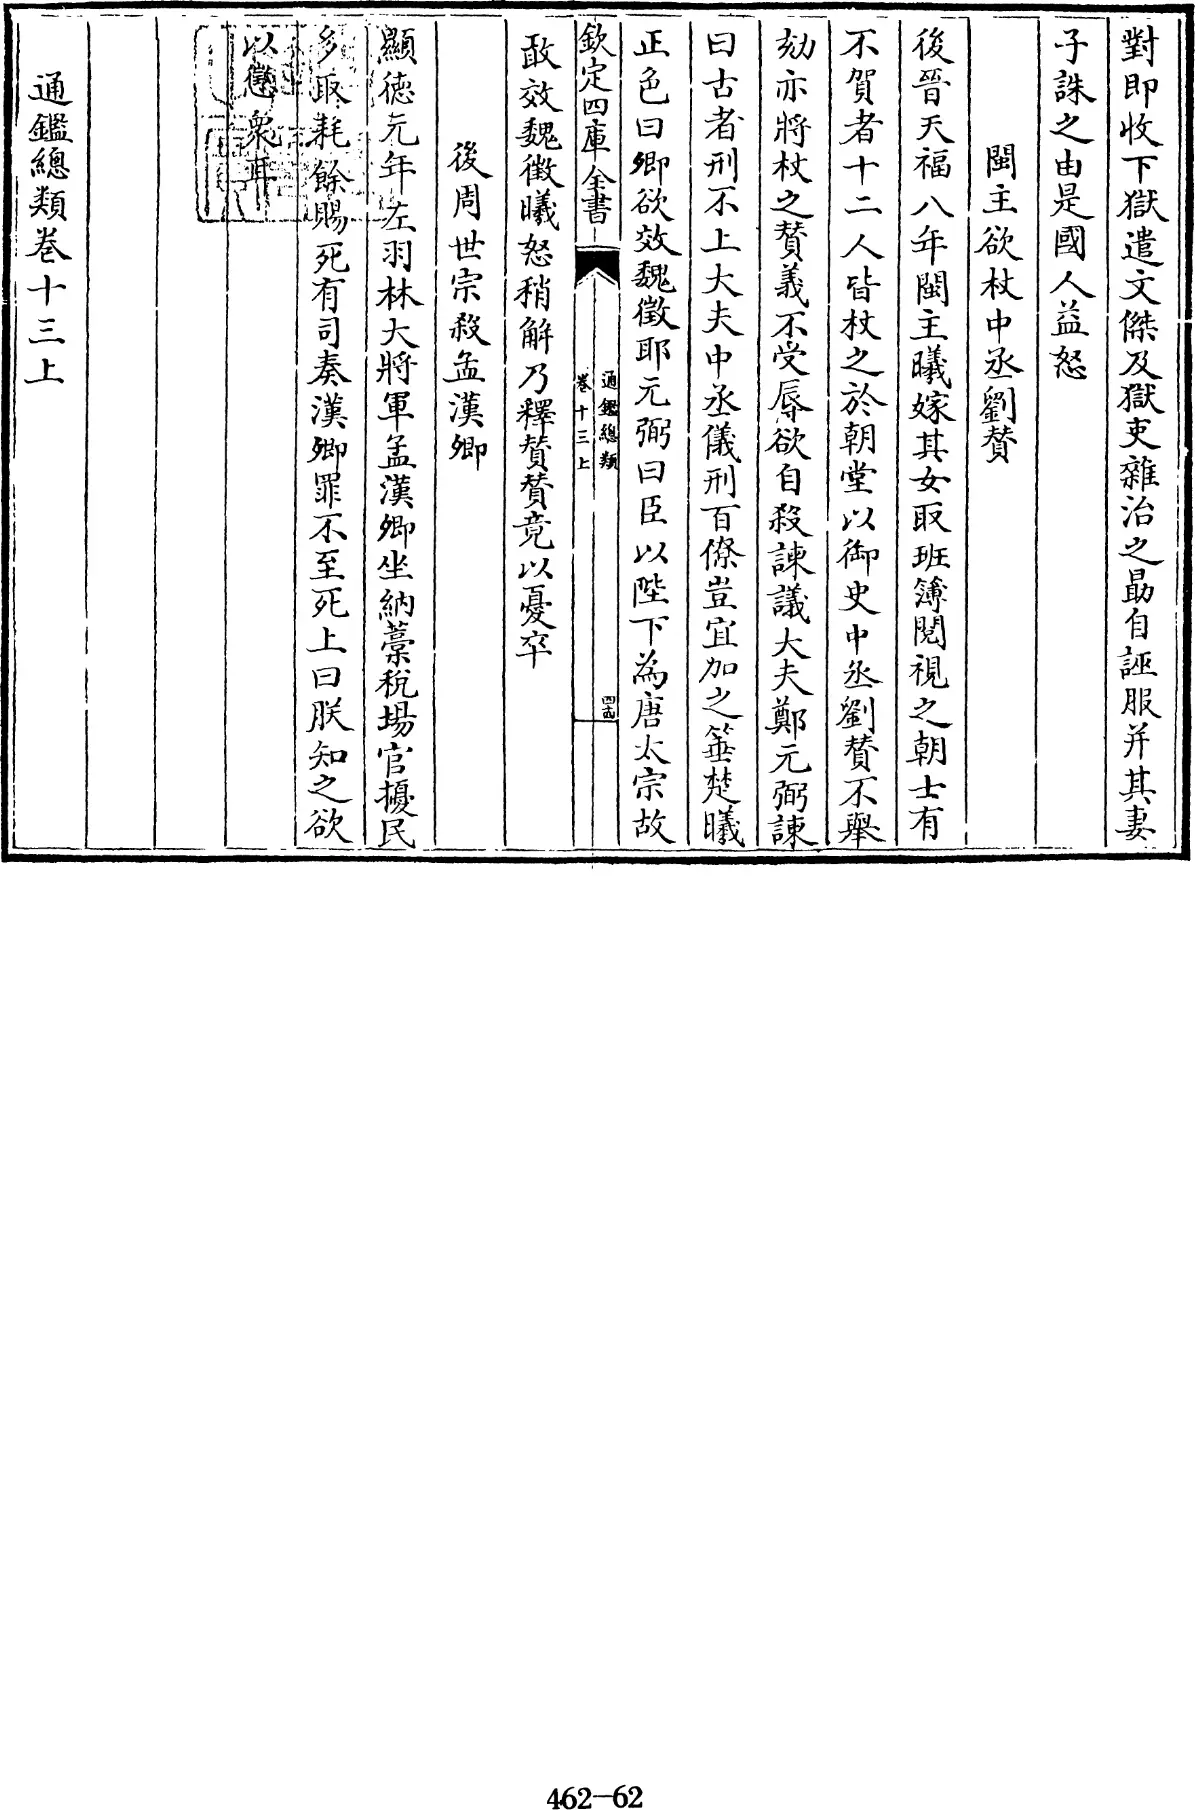 對即收下獄遣文傑及獄吏雜治之勗自誣服并其妻
子誅之由是國人益怒
閩主欲杖中丞劉賛
後晉天福八年閩主曦嫁其女取班簿閱視之朝士有
不賀者十二人皆杖之於朝堂以御史中丞劉賛不舉
劾亦將杖之賛義不受辱欲自殺諫議大夫鄭元弼諫
曰古者刑不上大夫中丞儀刑百僚豈宜加之箠楚曦
正色曰卿欲效魏徵耶元弼曰臣以陛下為唐太宗故
欽定四庫全書
通鑑總類
卷十三上
敢效魏徵曦怒稍解乃釋賛賛竟以憂卒
後周世宗殺孟漢卿
顯德元年左羽林大將軍孟漢卿坐納藁稅場官擾民
多取耗餘賜死有司奏漢卿罪不至死上曰朕知之欲
以懲衆耳
通鑑總類卷十三上
462-62